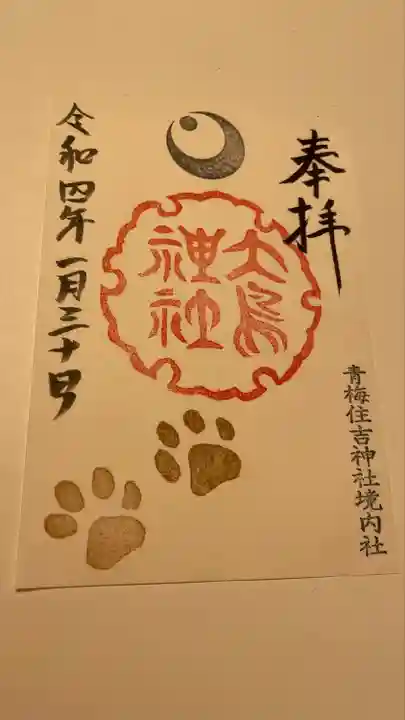 奉拝
青梅住吉神社境内社
大鳥
神社
令和四年一月三十日